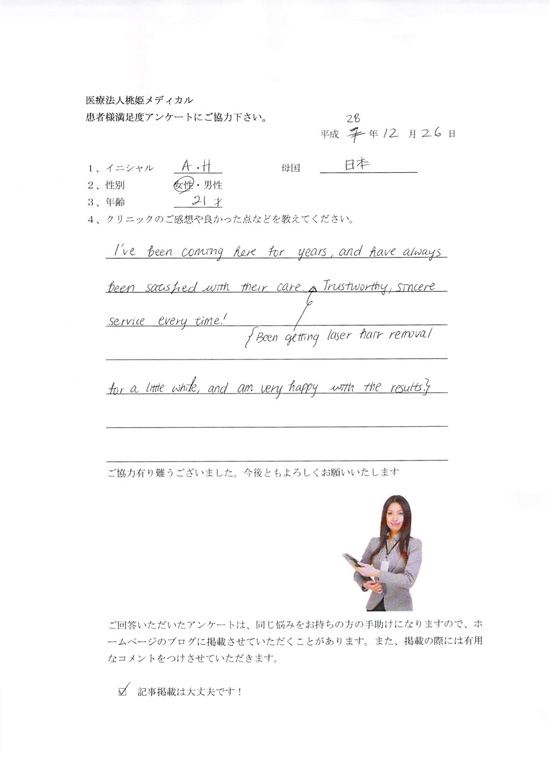 医療法人桃姫メディカル
患者様満足度アンケートにご協力下さい。
28
平成 年 12 月 26 日
1、イニシャル A・H 母国 日本
2、性別 女性・男性
3、年齢 21 才
4、クリニックのご感想や良かった点などを教えてください。
I've been coming here for years, and have always
been satisfied with their care. Trustworthy, sincere
service every time!
{Been getting laser hair removal
for a little while, and am very happy with the results!}
ご協力有り難うございました。今後ともよろしくお願いいたします
ご回答いただいたアンケートは、同じ悩みをお持ちの方の手助けになりますので、ホ
ームページのブログに掲載させていただくことがあります。また、掲載の際には有用
なコメントをつけさせていただきます。
☑ 記事掲載は大丈夫です！